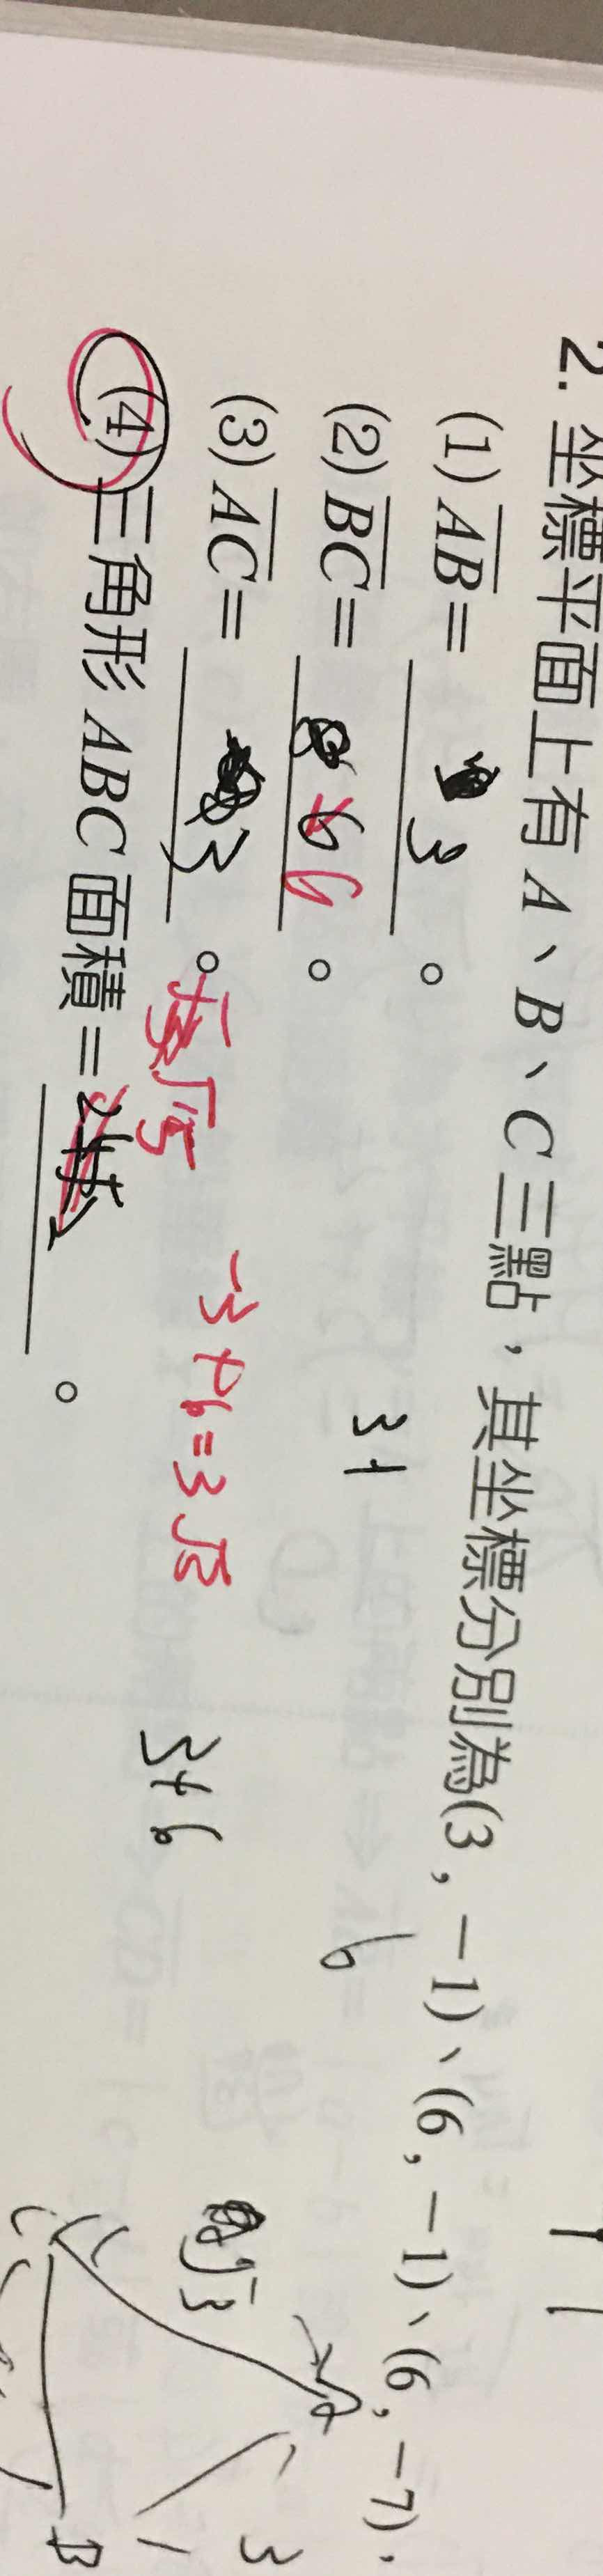 2. 坐標平面上有 A、B、C 三點，其坐標分別為(3 , －1)、(6 , －1)、(6 , －7)，
(1) AB = 3 。
(2) BC = 6 6 。
(3) AC = 3 。
√5
3+6=3√5
3+6
6
√3
(4) 三角形 ABC 面積 = 。
A
B
C
3